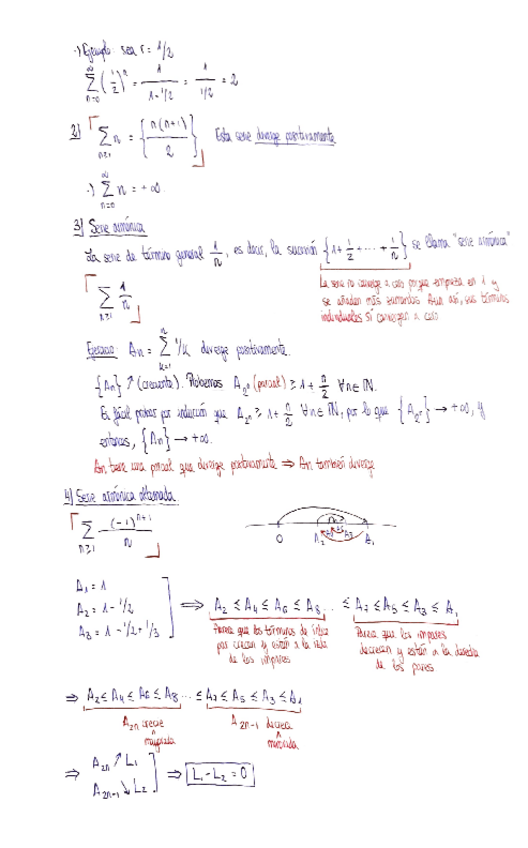 ·) Ejemplo: sea r = 1/2
∑_{n=0}^{∞} (1/2)^n = 1/(1-1/2) = 1/(1/2) = 2
2) ∑_{n≥1} n = { n(n+1)/2 } Esta serie diverge positivamente
·) ∑_{n=0}^{∞} n = +∞
3) Serie armónica
La serie de término general 1/n, es decir, la sucesión {1+1/2+···+1/n} se llama "serie armónica"
∑_{n≥1} 1/n
La serie no converge a cero porque empieza en 1 y
se añaden más sumandos. Aun así, sus términos
individuales sí convergen a cero
Ejercicio: An = ∑_{k=1}^{n} 1/k diverge positivamente.
{An} ↗ (creciente). Probemos A_{2^n} (parcial) ≥ 1+n/2 ∀n∈ℕ.
Es fácil probar por inducción que A_{2^n} ≥ 1+n/2 ∀n∈ℕ, por lo que {A_{2^n}} → +∞, y
entonces, {An} → +∞.
An tiene una parcial que diverge positivamente ⇒ An también diverge
4) Serie armónica alternada
∑_{n≥1} (-1)^{n+1}/n
0 A₂ A₃ A₁
A₁ = 1
A₂ = 1-1/2
A₃ = 1-1/2+1/3
⇒ A₂ ≤ A₄ ≤ A₆ ≤ A₈ ... ≤ A₇ ≤ A₅ ≤ A₃ ≤ A₁
Parece que los términos de índice
par crecen y están a la izda
de los impares
Parece que los impares
decrecen y están a la derecha
de los pares.
⇒ A₂ ≤ A₄ ≤ A₆ ≤ A₈ ... ≤ A₇ ≤ A₅ ≤ A₃ ≤ A₁
A_{2n} crece
^
mayorada
A_{2n-1} decrece
^
minorada
⇒ A_{2n} ↗ L₁
A_{2n-1} ↘ L₂
⇒ L₁-L₂ = 0